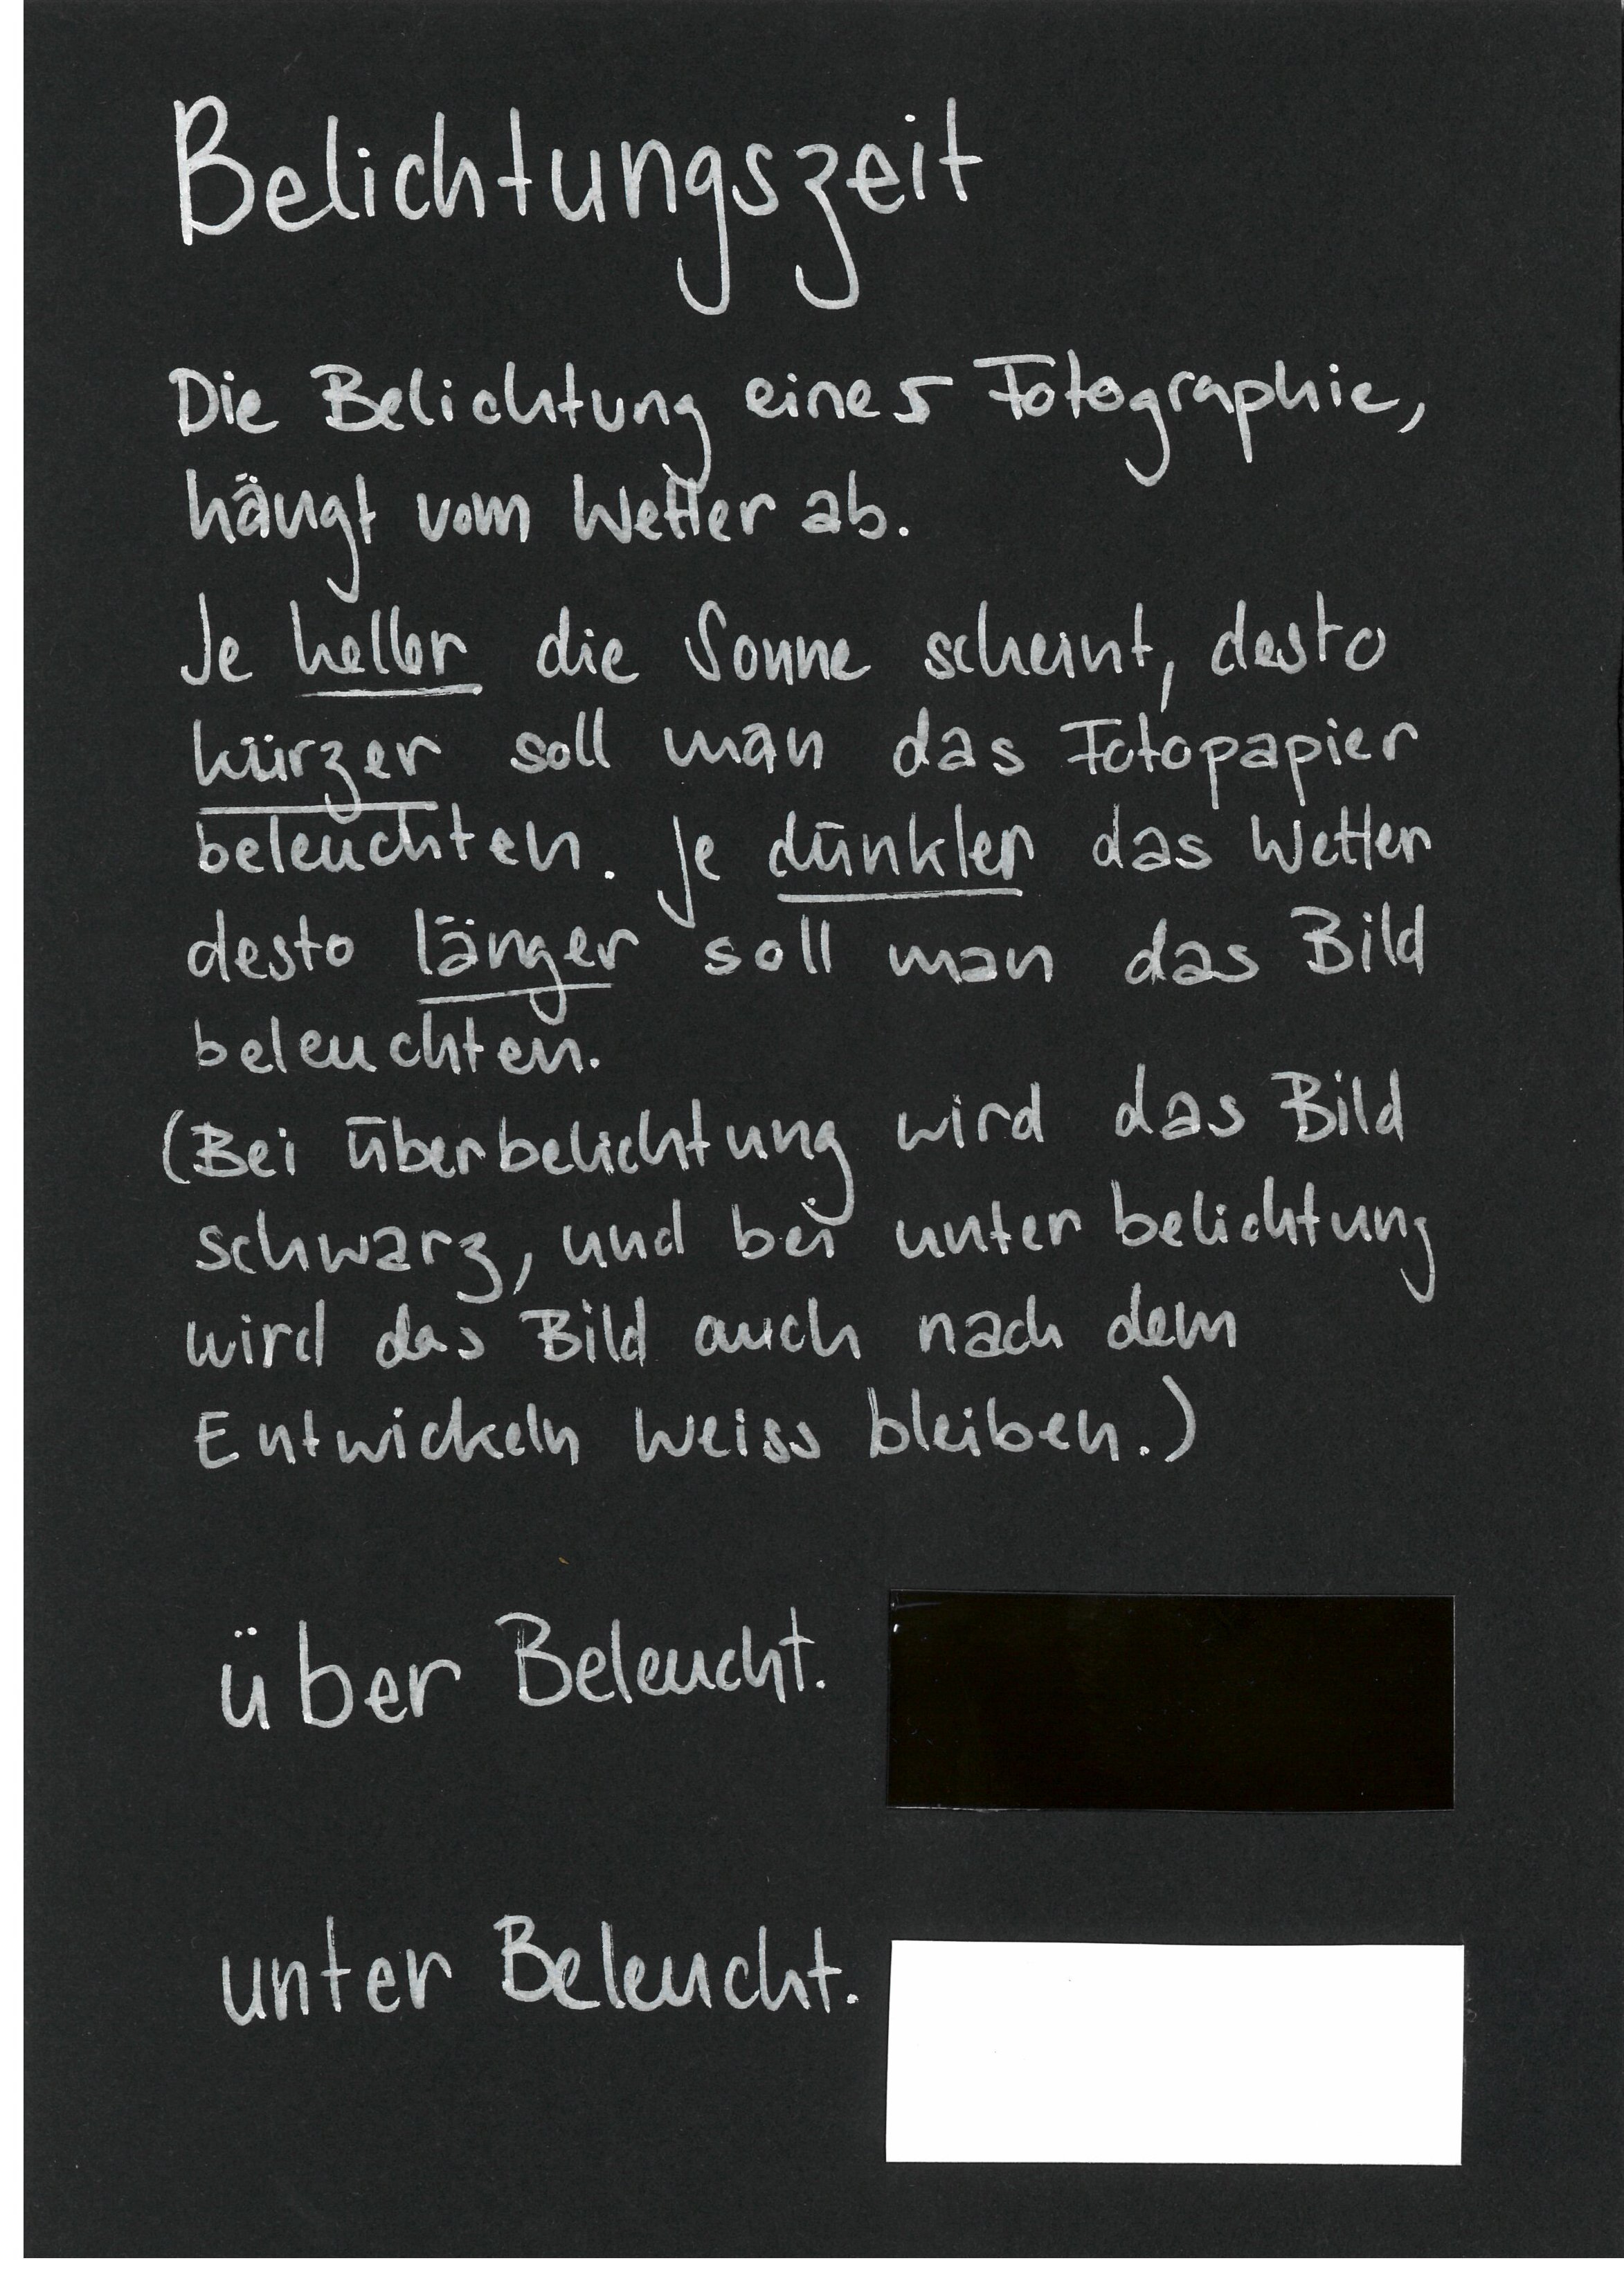 Belichtungszeit
Die Belichtung eines Fotographie,
hängt vom Wetter ab.
Je heller die Sonne scheint, desto
kürzer soll man das Fotopapier
beleuchten. Je dünkler das Wetter
desto länger soll man das Bild
beleuchten.
(Bei überbelichtung wird das Bild
schwarz, und bei unter belichtung
wird das Bild auch nach dem
Entwickeln weiss bleiben.)
über Beleucht.
unter Beleucht.